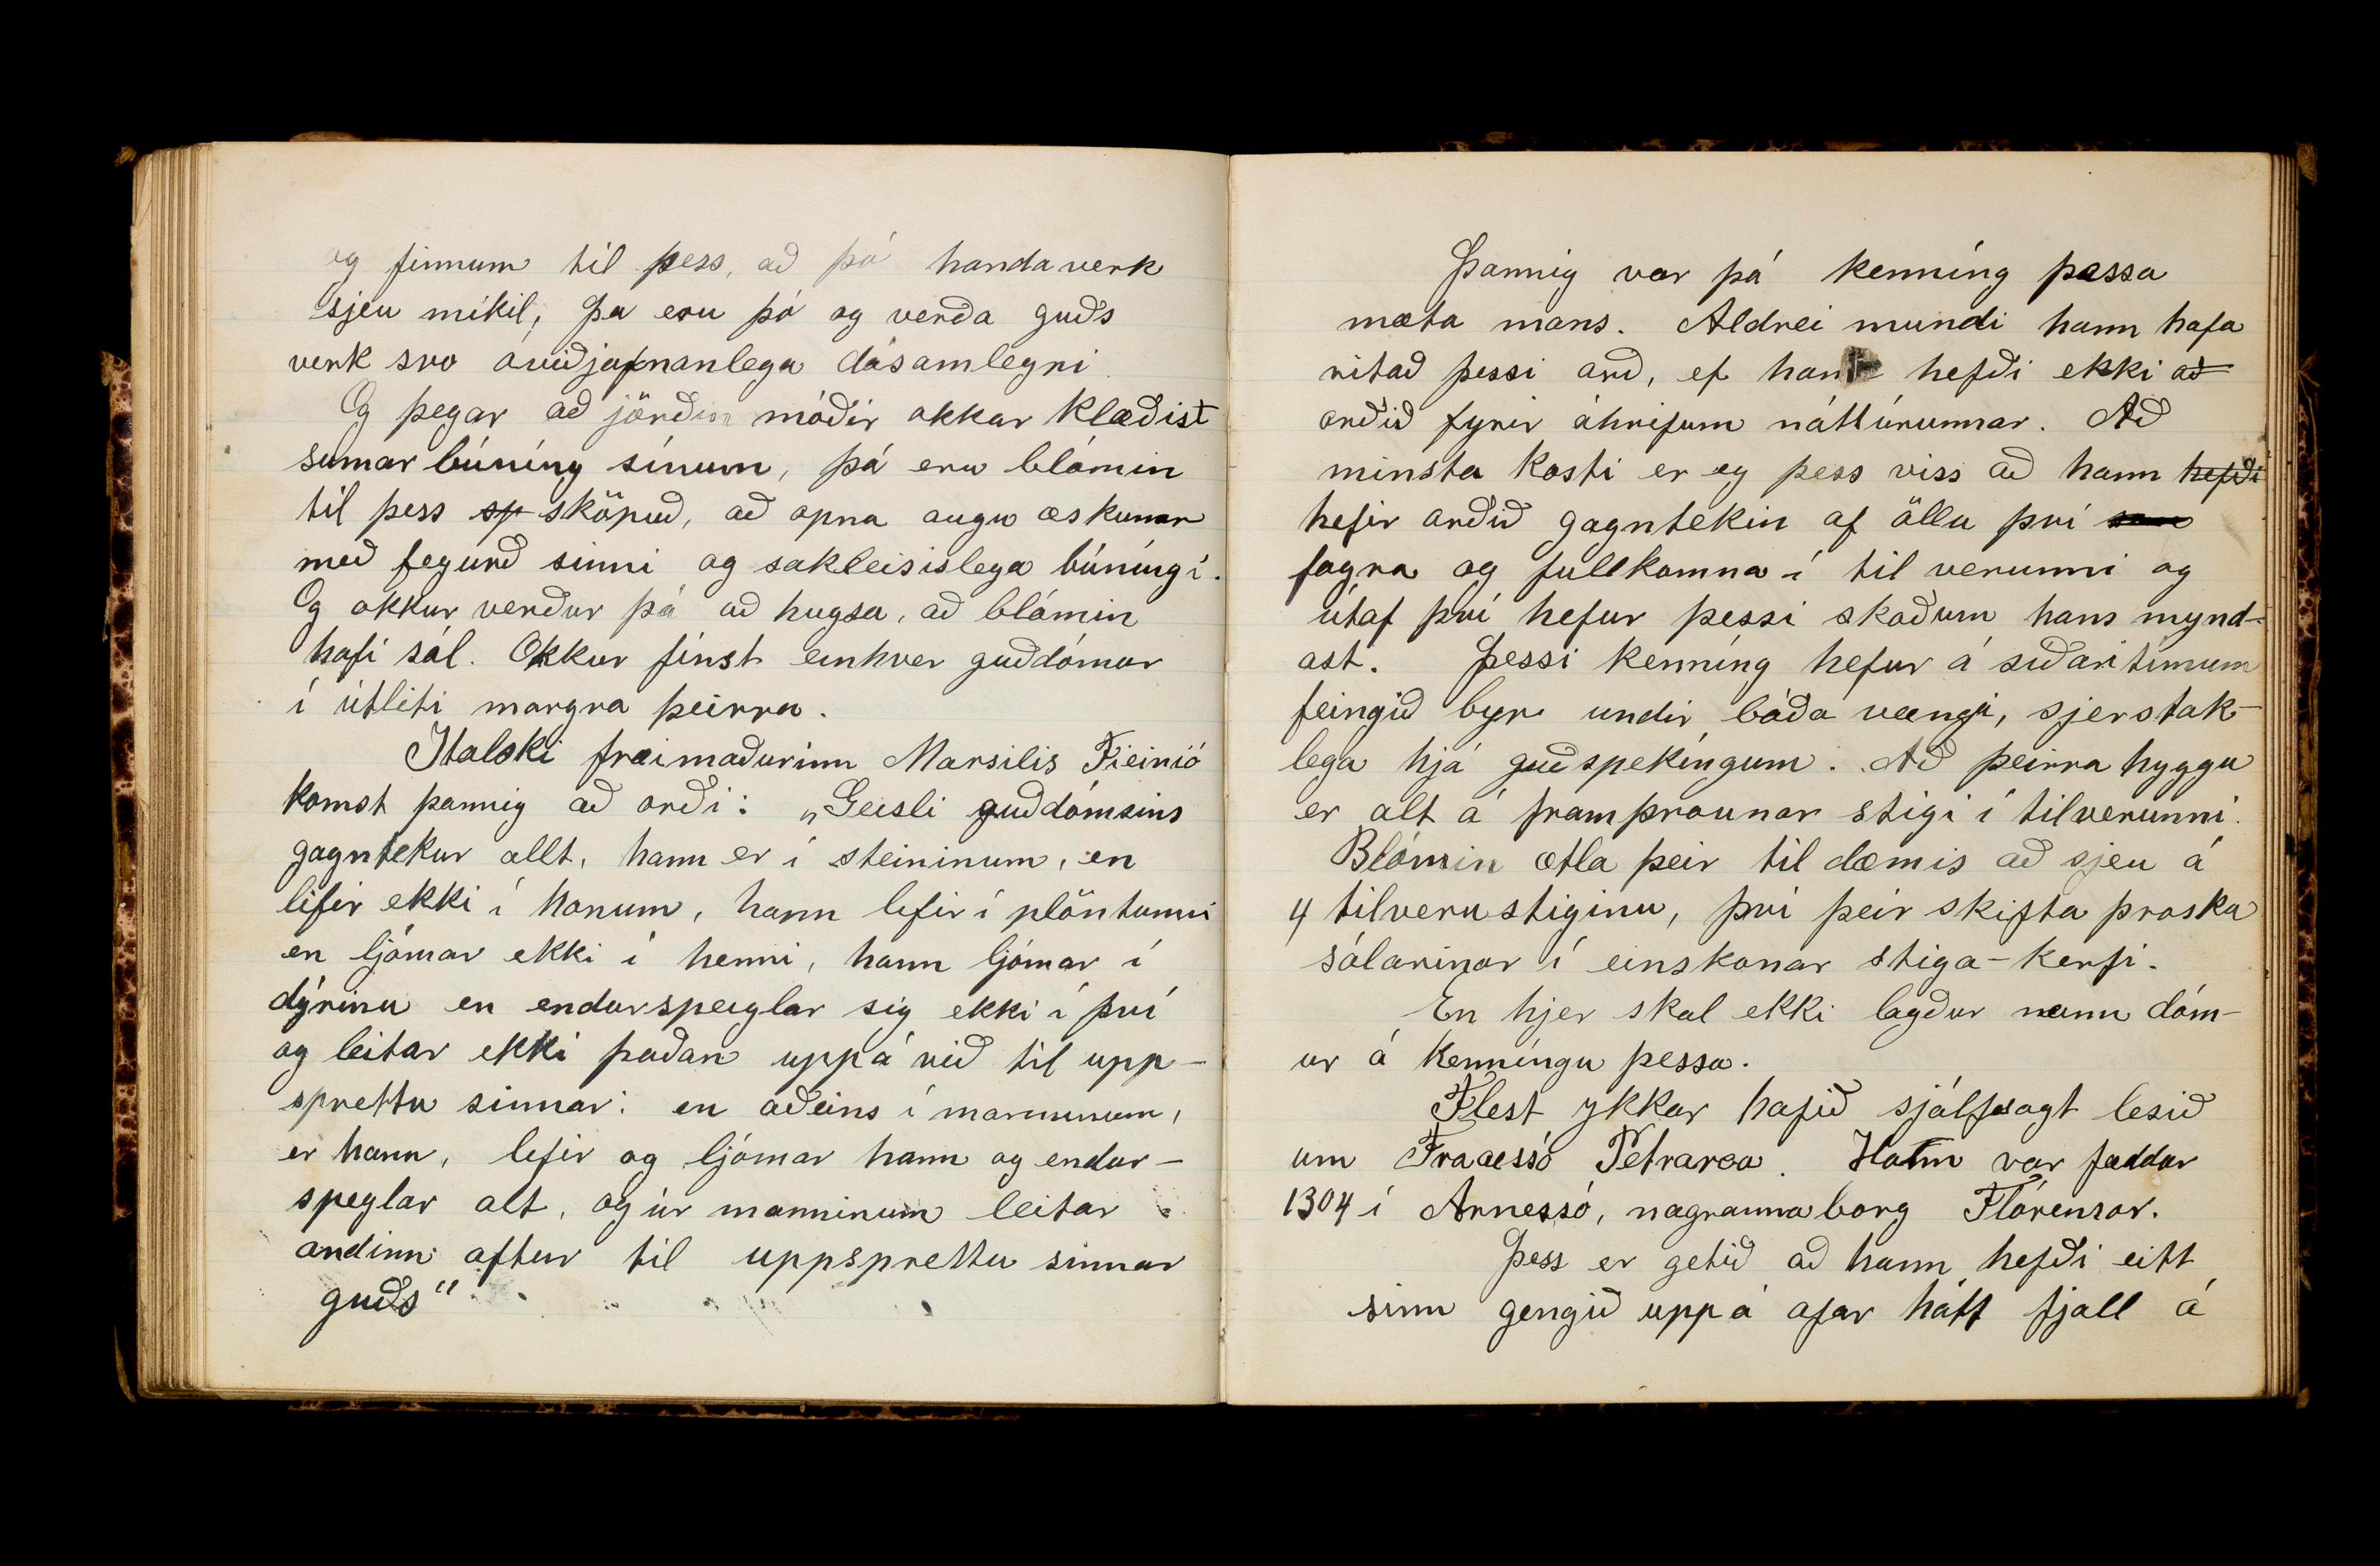 og finnum til þess, að þó handaverk
sjeu mikil, þa eru þó og verða guðs
verk svo óviðjafnanlega dásamlegri
Og þegar að jörðin móðir okkar klæðist
sumar búníng sínum, þá eru blómin
til þess sp sköpuð, að opna augu æskunar
með fegurð sinni og sakleisislega búníngi.
Og okkur verður þá að hugsa, að blómin
hafi sál. Okkur finst einhver guðdómur
í útliti margra þeirra.
Italski fræimaðurinn Marsilis Fieinió
komst þannig að orði: „Geisli guðdómsins
gagntekur allt, hann er í steininum, en
lifir ekki í honum, hann lifir í plöntunni
en ljómar ekki í henni, hann ljómar í
dýrinu en endurspeiglar sig ekki í því
og leitar ekki þaðan uppá við til upp-
sprettu sinnar: en aðeins í manninum,
er hann, lifir og ljómar hann og endur-
speglar alt, og úr manninum leitar
andinn aftur til uppsprettu sinnar
guðs"
Þannig var þá kenníng þessa
mæta mans. Aldrei mundi hann hafa
ritað þessi orð, ef hann hefði ekki að
orðið fyrir áhrifum náttúrunnar. Að
minsta kosti er eg þess viss að hann hefði
hefir orðið gagntekin af öllu því som
fagra og fullkomna í til verunni og
útaf því hefur þessi skoðum hans mynd-
ast. Þessi kenníng hefur á síðari tímum
feingið byr undir báða vængi, sjerstak-
lega hjá guðspekíngum. Að þeirra hyggu
er alt á framþrounar stigi í tilverunni.
Blómin ætla þeir til dæmis að sjeu á
4 tilveru stiginu, því þeir skifta þroska
sálarinar í einskonar stiga-kerfi.
En hjer skal ekki lagður neinn dóm-
ur á kenníngu þessa.
Flest ykkar hafið sjálfsagt lesið
um Fraaessó Petrarca. Hann var fæddur
1304 í Arnessó, nagranna borg Flórensar.
Þess er getið að hann hefði eitt
sinn gengið uppá afar hátt fjall á